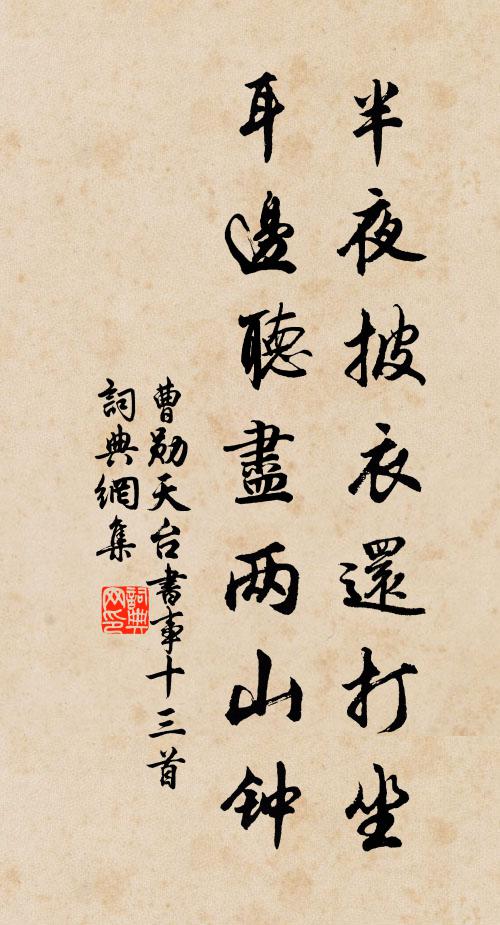 半夜披衣還打坐
耳邊聽盡兩山钟
曹勛天台書事十三首
詞典網集
詞典网印